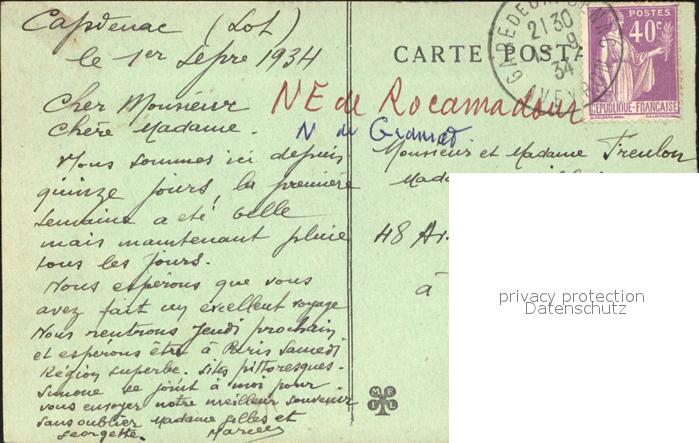 Capdenac (Lot)
le 1er Sepre 1934
CARTE POSTA
GARE DE
21 30
9
34
AVEYRON
POSTES
40c
REPUBLIQUE-FRANCAISE
NE de Rocamadour
N de Gramat
Cher Monsieur
Chère Madame.
Nous sommes ici depuis
quinze jours, la première
semaine a été belle
mais maintenant pluie
tous les jours.
Nous espérons que vous
avez fait un excellent voyage
Nous rentrons Jeudi prochain
et espérons être à Paris Samedi
Région superbe. Sites pittoresques.
Simone se joint à moi pour
vous envoyer notre meilleur souvenir
sans oublier Madame Gilles et
Georgette.
Monsieur et Madame Treulon
48 Av.
à
privacy protection
Datenschutz